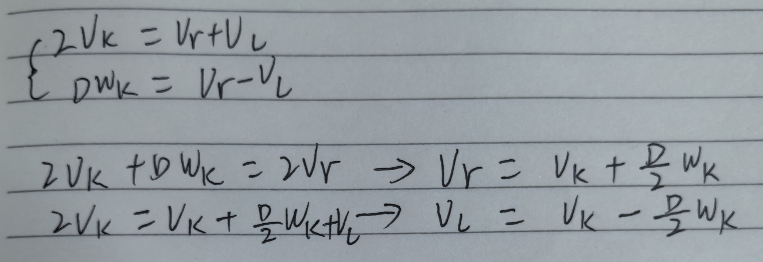 2V_K = V_r + V_L
DW_K = V_r - V_L
2V_K + DW_K = 2V_r → V_r = V_K + D/2 W_K
2V_K = V_K + D/2 W_K + V_L → V_L = V_K - D/2 W_K